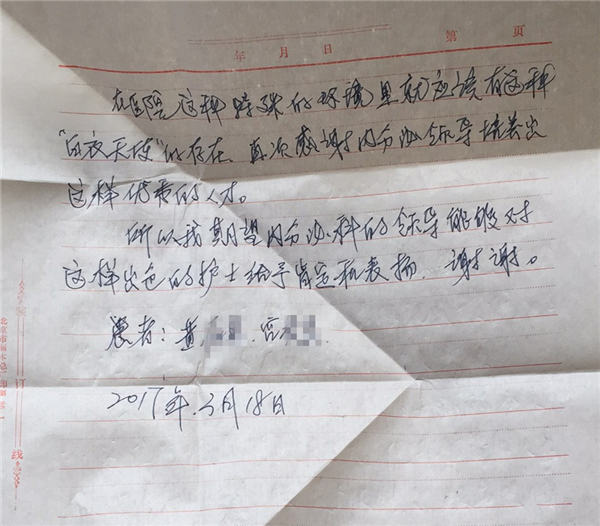 第 页
年 月 日
在医院这种特殊的环境里就应该有这种
“白衣天使”的存在。再次感谢内分泌领导培养出
这样优秀的人才。
所以我期望内分泌科的领导能够对
这样出色的护士给予肯定和表扬，谢谢。
患者：黄 宫
2017年.3月18日
订
线